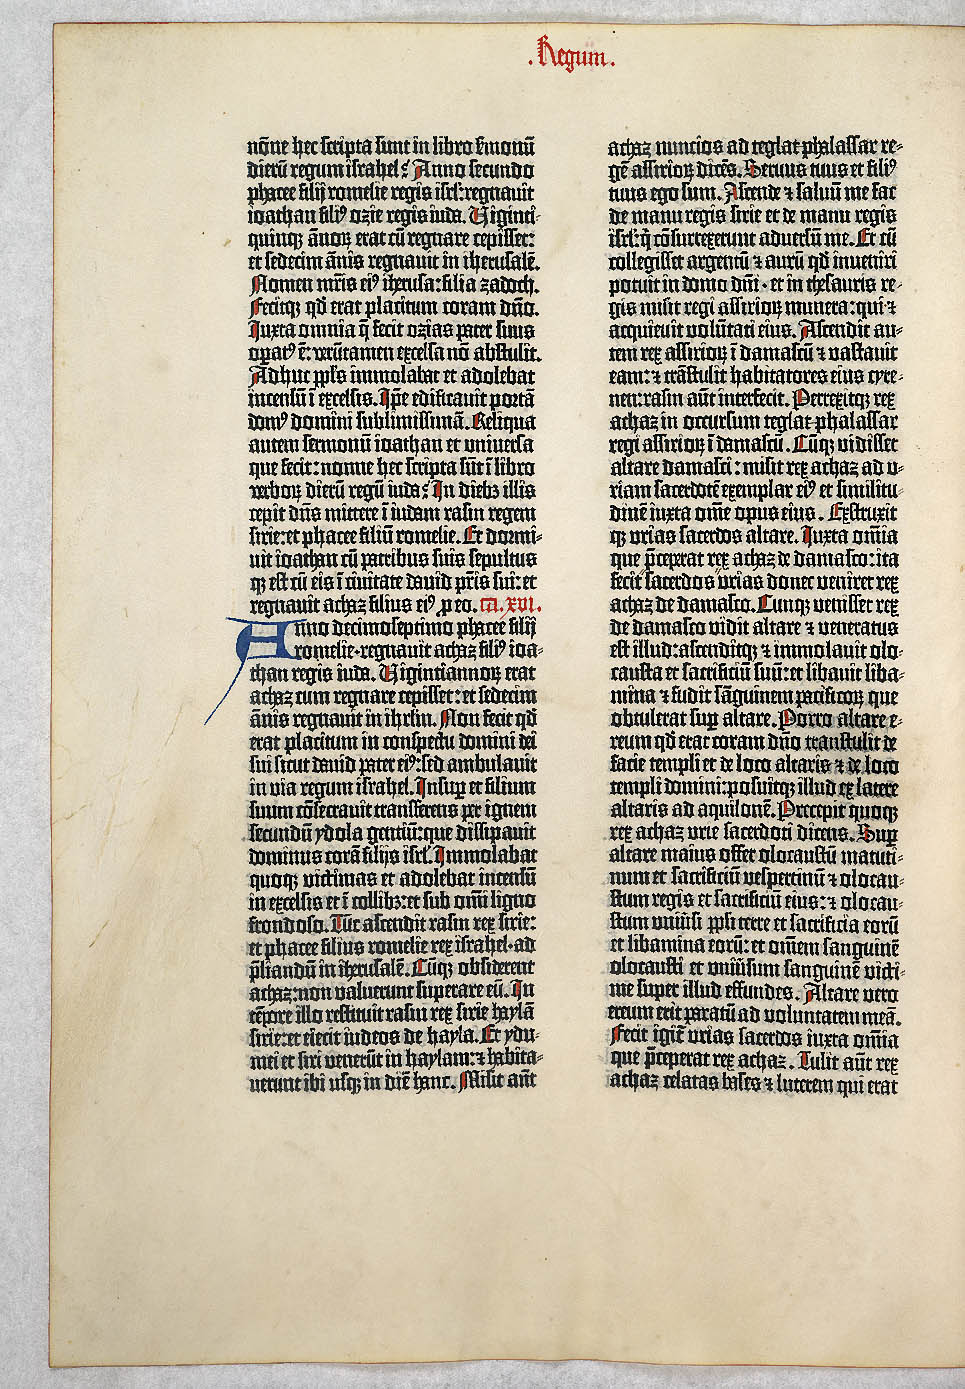 . Regum .
nōne hec scripta sunt in libro ẜmonū
dierū regum israhel? Anno secundo
phacee filij romelie regis isrl': regnauit
ioathan fili⁹ ozie regis iuda. Viginti-
quinqꝫ ānoꝝ erat cū regnare cepisset:
et sedecim ānis regnauit in iherusalē.
Nomen mr̄is ei⁹ iherusa: filia zadoch.
Fecitqꝫ qd̄ erat placitum coram dn̄o.
Iuxta omnia q̄ fecit ozias pater suus
oꝑat⁹ ē: verūtamen excelsa nō abstulit.
Adhuc ppl's immolabat et adolebat
incensū ī excelsis. Ip̄e edificauit portā
dom⁹ domini sublimissimā. Reliqua
autem sermonū ioathan et universa
que fecit: nonne hec scripta sūt ī libro
verboꝝ dierū regū iuda? In diebꝫ illis
cepit dn̄s mittere ī iudam rasin regem
sirie: et phacee filiū romelie. Et dormi-
uit ioathan cū patribus suis sepultus
qꝫ est cū eis ī ciuitate dauid pr̄is sui: et
regnauit achaz filius ei⁹ ꝓ eo. Ca. XVI.
Anno decimoseptimo phacee filij
romelie · regnauit achaz fili⁹ ioa-
than regis iuda. Vigintiannoꝝ erat
achaz cum regnare cepisset: et sedecim
ānis regnauit in ihrlm. Non fecit qd̄
erat placitum in conspectu domini dei
sui sicut dauid pater ei⁹: sed ambulauit
in via regum israhel. Insuꝑ et filium
suum cōsecrauit transferens per ignem
secundū ydola gentiū: que dissipauit
dominus corā filijs isrl'. Immolabat
quoqꝫ victimas et adolebat incensū
in excelsis et ī collibꝫ: et sub omī ligno
frondoso. Tūc ascendit rasin rex sirie:
et phacee filius romelie rex israhel · ad
p̄liandū in iherusalē. Cūqꝫ obsiderent
achaz: non valuerunt superare eū. In
tēpore illo restituit rasin rex sirie haylā
sirie: et eiecit iudeos de hayla. Et ydu-
mei et siri venerūt in haylam: ⁊ habita-
uerunt ibi usqꝫ in diē hanc. Misit aūt
achaz nuncios ad teglat phalassar re-
gē assirioꝝ dicēs. Seruus tuus et fili⁹
tuus ego sum. Ascende ⁊ saluū me fac
de manu regis sirie et de manu regis
isrl': q̄ cōsurrexerunt aduersū me. Et cū
collegisset argentū ⁊ aurū qd̄ inueniri
potuit in domo dn̄i · et in thesauris re-
gis misit regi assirioꝝ munera: qui ⁊
acquieuit volūtati eius. Ascendit au-
tem rex assirioꝝ ī damascū ⁊ vastauit
eam: ⁊ trāstulit habitatores eius cyre-
nen: rasin aūt interfecit. Perrexitqꝫ rex
achaz in occursum teglat phalassar
regi assirioꝝ ī damascū. Cūqꝫ vidisset
altare damasci: misit rex achaz ad v-
riam sacerdotē exemplar ei⁹ et similitu-
dinē iuxta om̄e opus eius. Exstruxit
qꝫ vrias sacerdos altare. Iuxta om̄ia
que p̄ceperat rex achaz de damasco: ita
fecit sacerdos vrias donec veniret rex
achaz de damasco. Cunqꝫ venisset rex
de damasco vidit altare ⁊ veneratus
est illud: ascenditqꝫ ⁊ immolauit olo-
causta et sacrificiū suū: et libauit liba-
mina ⁊ fudit sāguinem pacificoꝝ que
obtulerat suꝑ altare. Porro altare e-
reum qd̄ erat coram dn̄o transtulit de
facie templi et de loco altaris ⁊ de loco
templi domini: posuitqꝫ illud ex latere
altaris ad aquilonē. Precepit quoqꝫ
rex achaz vrie sacerdoti dicens. Suꝑ
altare maius offer olocaustū matuti-
num et sacrificiū vespertinū ⁊ olocau-
stum regis et sacrificiū eius: ⁊ olocau-
stum vniūsi pp̄li terre et sacrificia eorū
et libamina eorū: et om̄em sanguinē
olocausti et vniūsum sanguinē victi-
me super illud effundes. Altare vero
ereum erit paratū ad voluntatem meā.
Fecit igit̄ vrias sacerdos iuxta om̄ia
que p̄ceperat rex achaz. Tulit aūt rex
achaz celatas bases ⁊ luterem qui erat